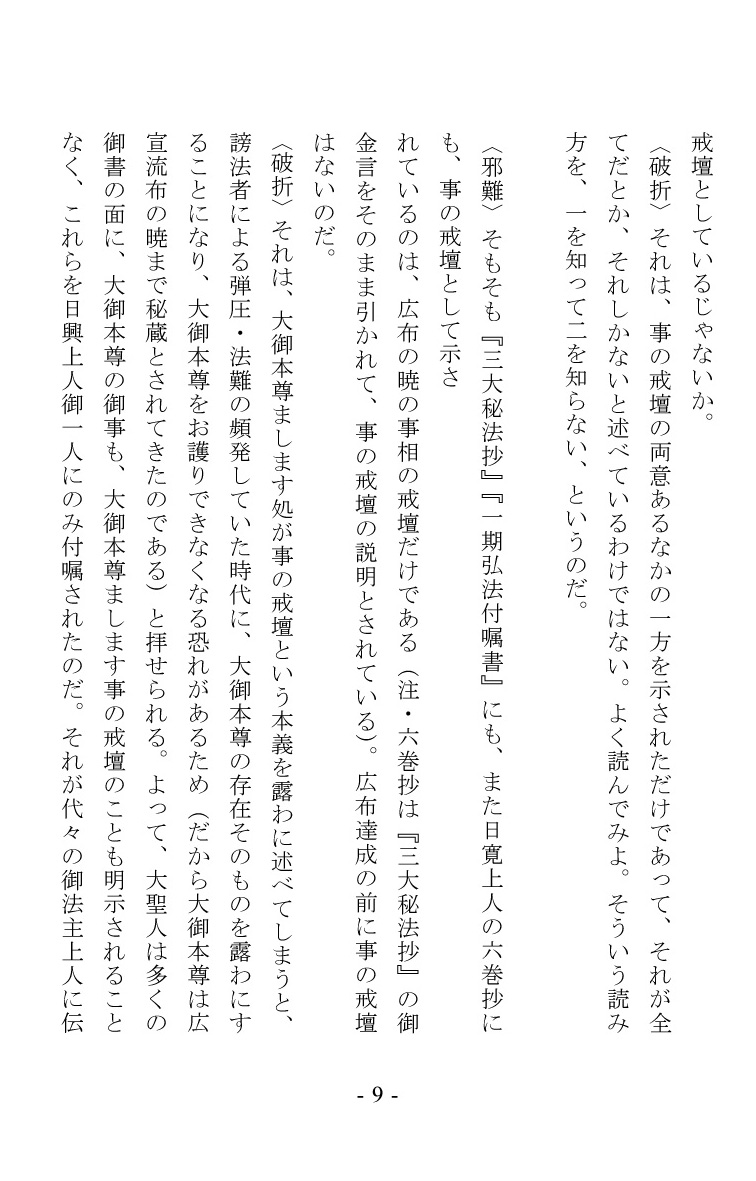 戒壇としているじゃないか。
〈破折〉それは、事の戒壇の両意あるなかの一方を示されただけであって、それが全
てだとか、それしかないと述べているわけではない。よく読んでみよ。そういう読み
方を、一を知って二を知らない、というのだ。
〈邪難〉そもそも『三大秘法抄』『一期弘法付嘱書』にも、また日寛上人の六巻抄に
も、事の戒壇として示さ
れているのは、広布の暁の事相の戒壇だけである（注・六巻抄は『三大秘法抄』の御
金言をそのまま引かれて、事の戒壇の説明とされている）。広布達成の前に事の戒壇
はないのだ。
〈破折〉それは、大御本尊まします処が事の戒壇という本義を露わに述べてしまうと、
謗法者による弾圧・法難の頻発していた時代に、大御本尊の存在そのものを露わにす
ることになり、大御本尊をお護りできなくなる恐れがあるため（だから大御本尊は広
宣流布の暁まで秘蔵とされてきたのである）と拝せられる。よって、大聖人は多くの
御書の面に、大御本尊の御事も、大御本尊まします事の戒壇のことも明示されること
なく、これらを日興上人御一人にのみ付嘱されたのだ。それが代々の御法主上人に伝
- 9 -